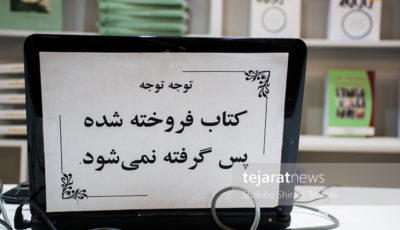 توجه توجه
کتاب فروخته شده
پس گرفته نمی‌شود.
tejaratnews